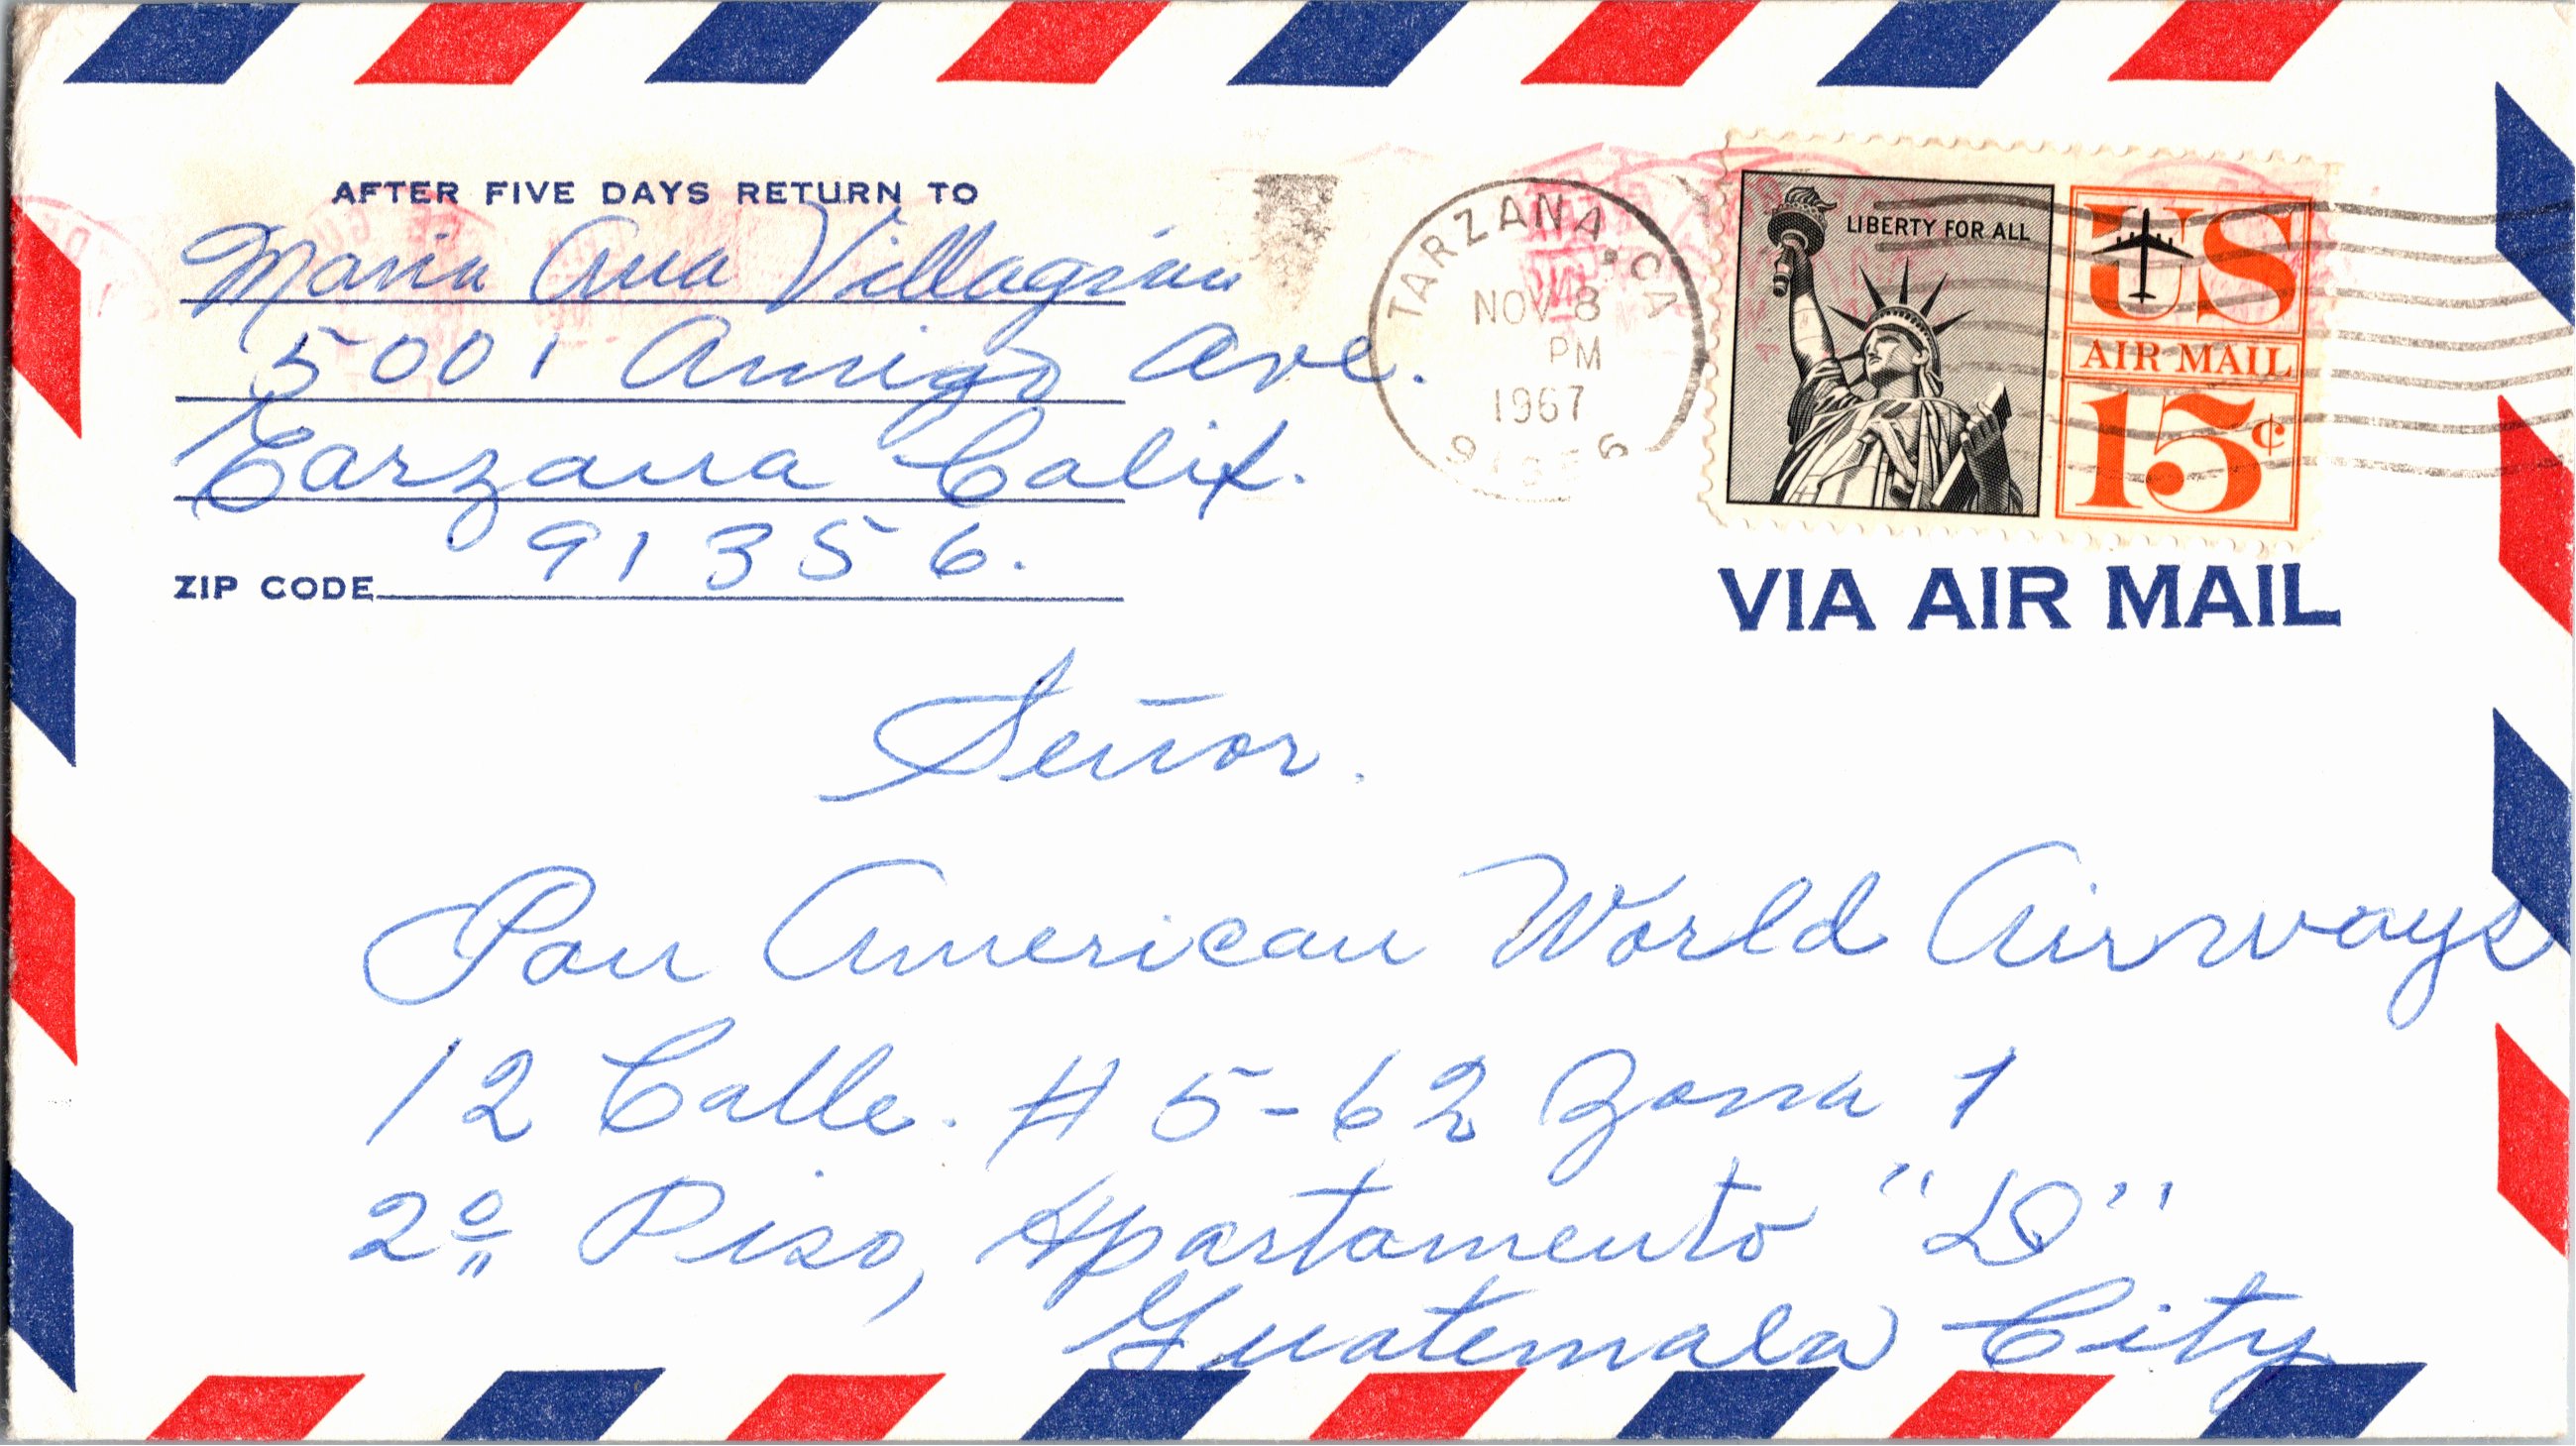 AFTER FIVE DAYS RETURN TO
Maria Ana Villagran
5001 Amigo Ave.
Tarzana Calif.
ZIP CODE 91356.
TARZANA, CA
NOV 8
PM
1967
91356
LIBERTY FOR ALL
US
AIR MAIL
15¢
VIA AIR MAIL
Señor.
Pan American World Airways
12 Calle. # 5-62 Zona 1
2º Piso, Apartamento "D"
Guatemala City